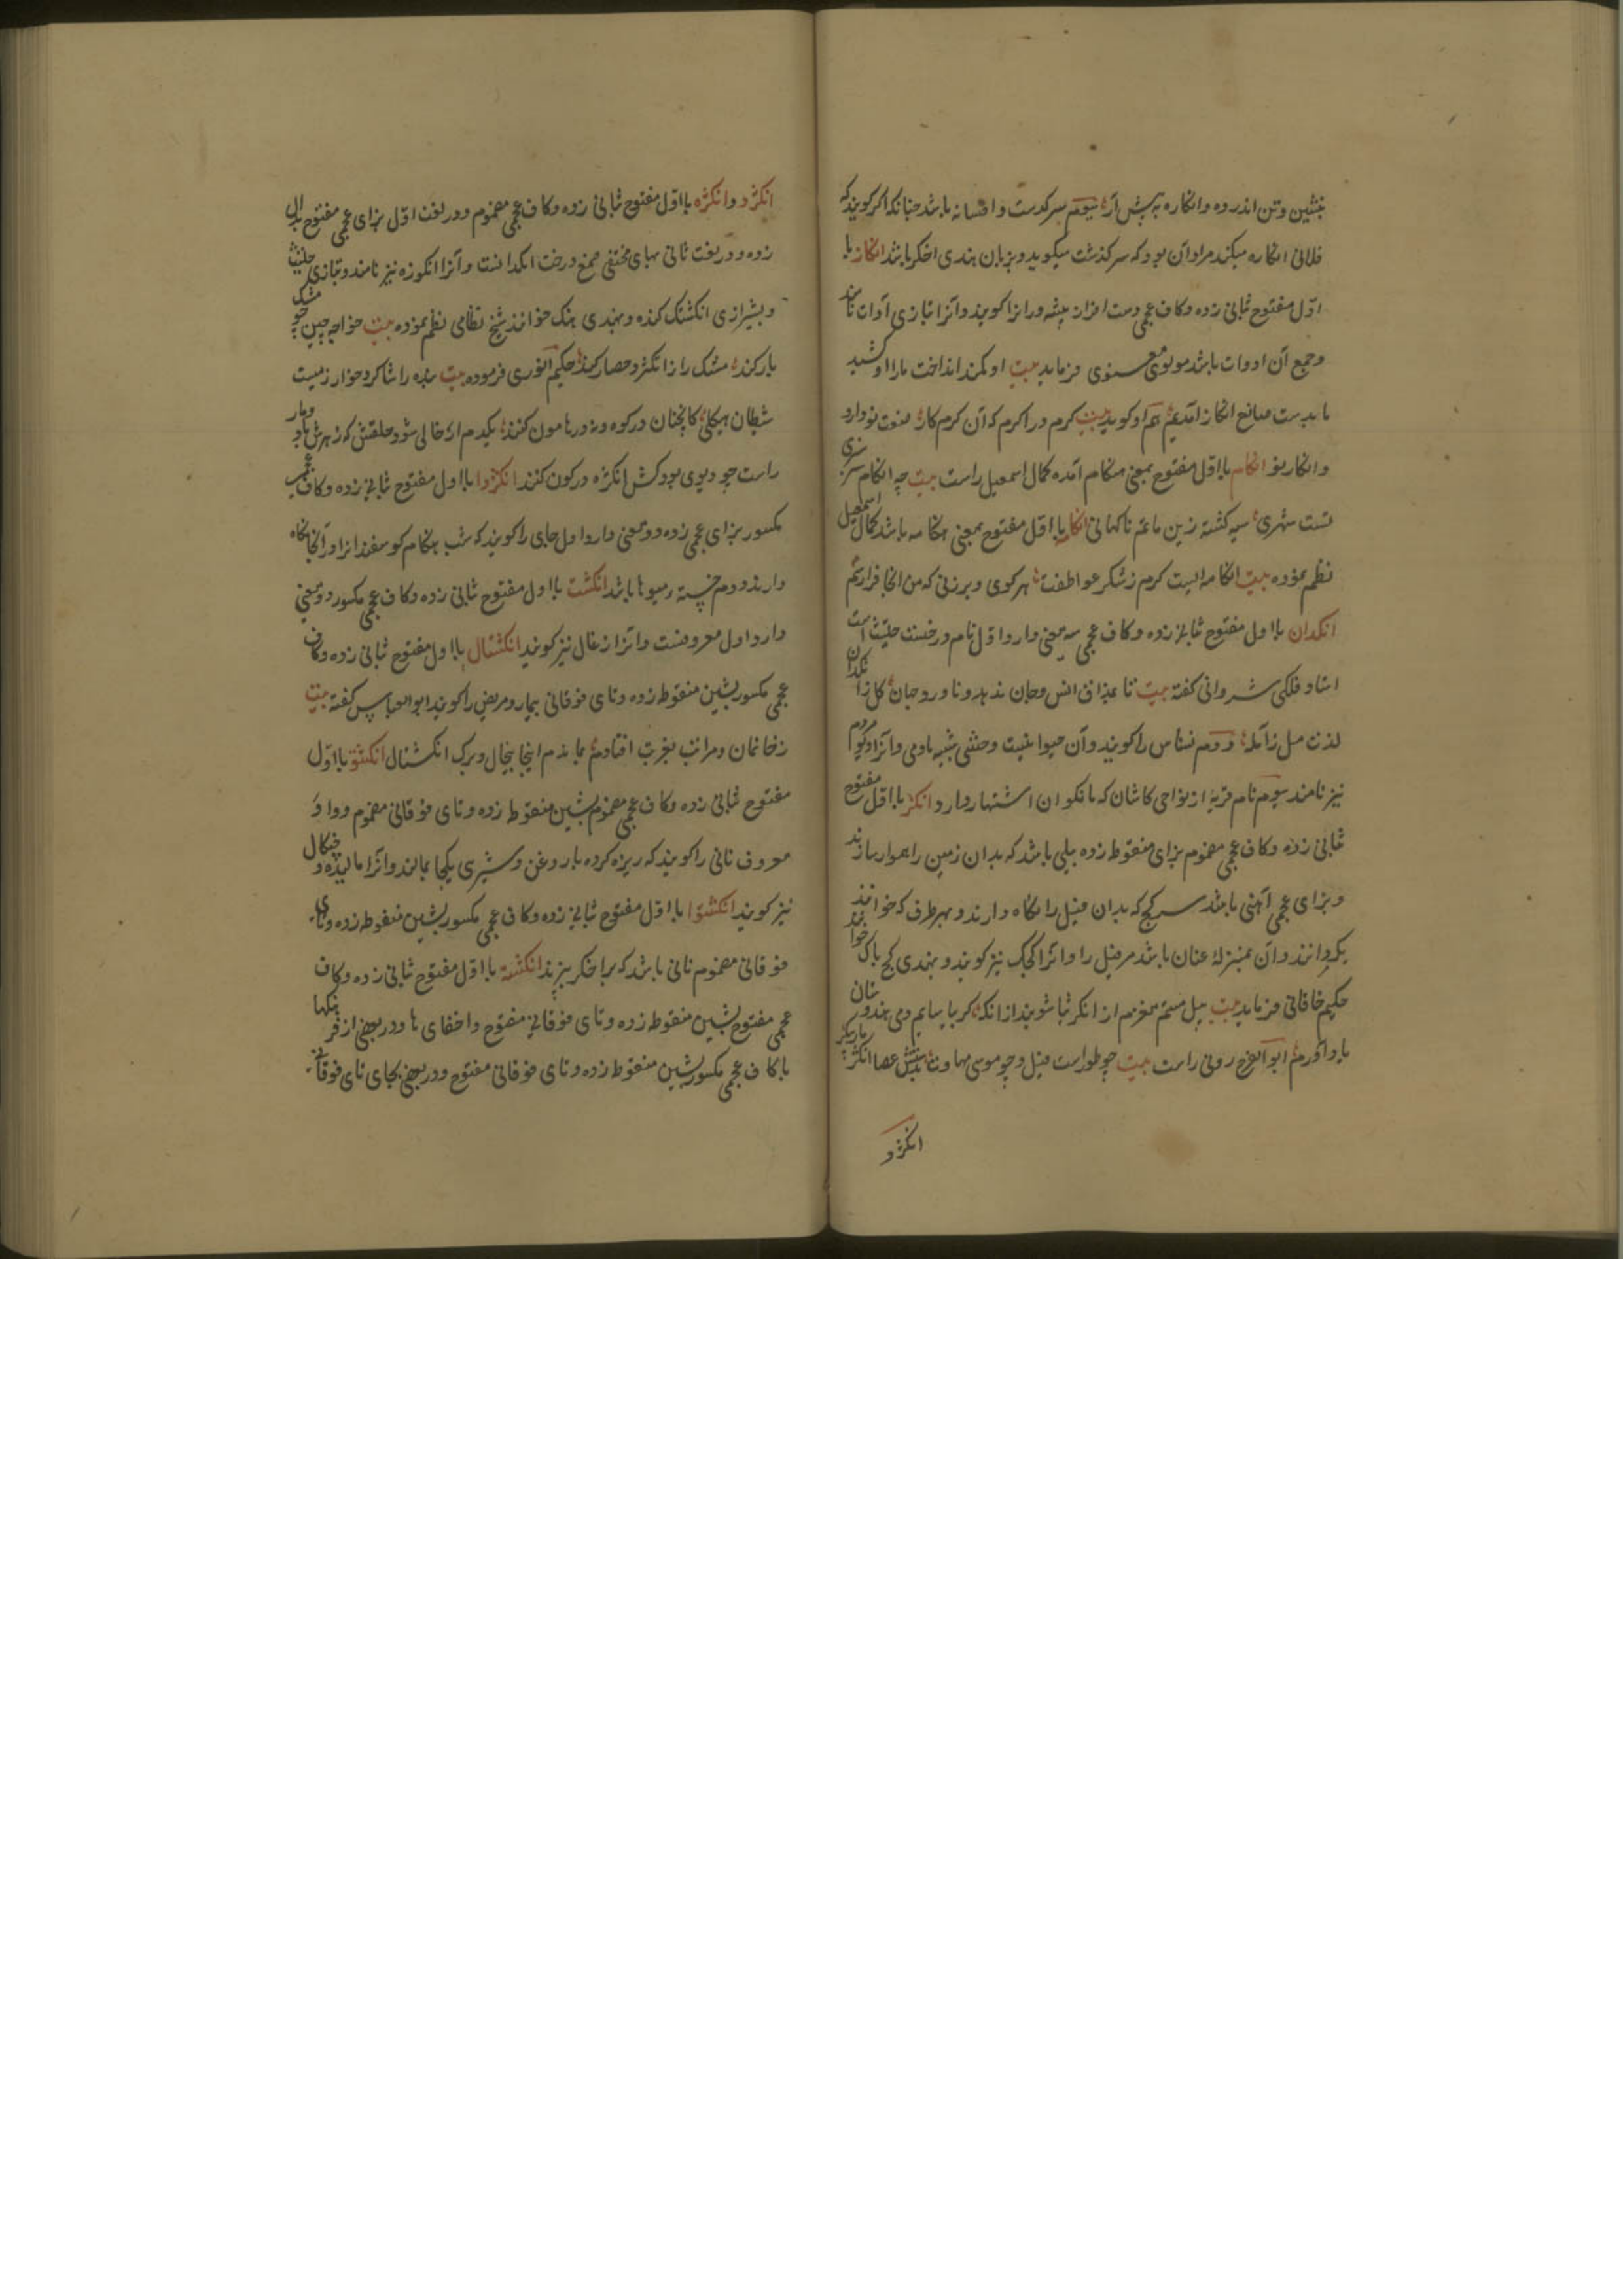 بنشین و تن اندر ده و انکاره به پیش آر سیوم سرکذشت و افسانه باشد چنانکه اکر کویند که
فلانی انکاره میکند مراد آن بود که سرکذشت میکوید و بزبان هندی اخکر باشد انکاز با
اول مفتوح بثانی زده و کاف عجمی دست افزار پیشه ورانرا کویند و آنرا بتازی آدات نامند
و جمع آن ادوات باشد مولوی معنوی فرماید بیت او کمند انداخت ما را او کشید
ما بدست صانع انکاز آمدیم هم او کوید بیت کرم در اکرم که آن کرم کار صنعت نو دارد
و انکار نو انکام با اول مفتوح بمعنی هنکام آمده کمال اسمعیل راست بیت چه انکام سری
تست شهری سیه کشته زین ماتم ناکهانی انکامه با اول مفتوح بمعنی هنکامه باشد کمال اسمعیل
نظم نموده بیت انکامه ایست کرم ز شکر عواطفت هر کوی و برزنی که من آنجا فرارسم
انکدان با اول مفتوح بثانی زده و کاف عجمی سه معنی دارد اول نام درخت حلتیت است
استاد فلکی شروانی کفته بیت تا بمذاق انس و جان ندهد و ناورد جهان کل ز انکدان
لذت مل ز آمله دوم نسناس را کویند و آن حیوانیست وحشی شبیه بآدمی و آنرا دیو مردم
نیز نامند سوم نام قریه از نواحی کاشان که بانکوان اشتهار دارد و انکز با اول مفتوح
بثانی زده و کاف عجمی مضموم بزای منقوطه زده بیلی باشد که بدان زمین را هموار سازند
و بزای عجمی آهنی باشد سرکج که بدان فیل را نکاه دارند و بهر طرف که خواهند
بکردانند و آن بمنزله عنان باشد مر فیل را و آنرا کجک نیز کویند و بهندی آنکس خوانند
حکیم خاقانی فرماید بیت پیل مستم مغزم از انکژ بیاشوبید از انکه کر بیاسایم دمی هندوستان
یاد آورم ابوالفرج رونی راست بیت چو طور است فیل و چو موسی مهاوت بدستش عصا انکژ
انکژد
انکژد و انکژه با اول مفتوح بثانی زده و کاف عجمی مضموم و در لغت اول بزای عجمی مفتوح بدال
زده و در لغت ثانی بهای مختفی صمغ درخت انکدانست و آنرا انکوزه نیز نامند و بتازی حلتیت
و بشیرازی انکشتک کنده و بهندی هنک خوانند شیخ نظامی نظم نموده بیت خواجه چین چو مشک
بار کند مشک را ز انکژه حصار کند حکیم انوری فرموده بیت بنده را شاکرد خوارزمیست
شیطان هیکلی کانچنان در کوه و نه در هامون کنند یکدم ار خالی شود حلقش که زهرش باد و مار
راست چو دیوی بود کش انکژه در کون کنند انکژوا با اول مفتوح بثانی زده و کاف عجمی
مکسور بزای عجمی زده دو معنی دارد اول جای را کویند که شب هنکام کوسفندانرا در آنجا نکاه
دارند و دوم خسته میوها باشد انکشت با اول مفتوح بثانی زده و کاف عجمی مکسور دو معنی
دارد اول معروفست و آنرا زغال نیز کویند انکشتال با اول مفتوح بثانی زده و کاف
عجمی مکسور بشین منقوطه زده و تای فوقانی بیمار و مریض را کویند ابوالعباس کفته بیت
ز خانمان و مراتب بغربت افتادم بماندم اینجا بیجال و برک انکشتال انکشتو با اول
مفتوح بثانی زده و کاف عجمی مضموم بشین منقوطه زده و تای فوقانی مضموم و واو
معروف نانی را کویند که ریزه کرده با روغن و شیری یکجا بمالند و آنرا مالیده و چنکال
نیز کویند انکشتوا با اول مفتوح بثانی زده و کاف عجمی مکسور بشین منقوطه زده و تای
فوقانی مضموم نانی باشد که بر اخکر بپزند انکشته با اول مفتوح بثانی زده و کاف
عجمی مفتوح بشین منقوطه زده و تای فوقانی مفتوح و اخفای ها و در بعضی از فرهنکها
با کاف عجمی مکسور بشین منقوطه زده و تای فوقانی مفتوح و در بعضی بجای تای فوقانی